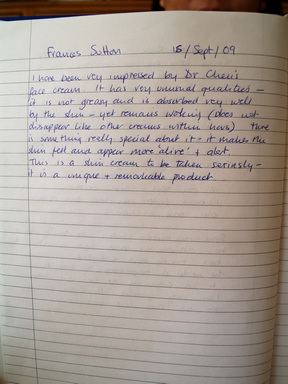 Frances Sutton 15/Sept/09
I have been very impressed by Dr Chen's
face cream. It has very unusual qualities –
it is not greasy and is absorbed very well
by the skin – yet remains working (does not
disappear like other creams within hours) There
is something really special about it – it makes the
skin feel and appear more 'alive' + alert.
This is a skin cream to be taken seriously –
it is a unique + remarkable product.